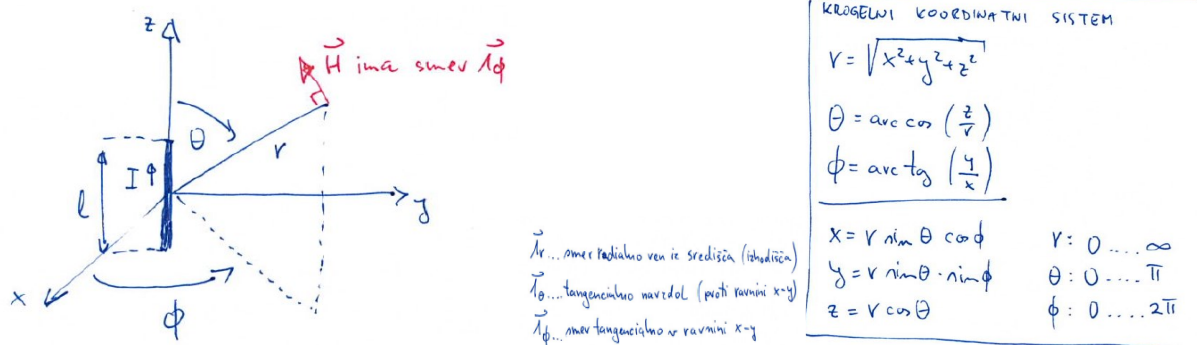 z
H⃗ ima smer 1⃗ϕ
θ
r
I
l
y
x
ϕ
1⃗r... smer radialno ven iz središča (izhodišča)
1⃗θ.... tangencialno navzdol (proti ravnini x-y)
1⃗ϕ... smer tangencialno v ravnini x-y
KROGELNI KOORDINATNI SISTEM
r = √x²+y²+z²
θ = arc cos (z/r)
ϕ = arc tg (y/x)
x = r sin θ cos ϕ r: 0 .... ∞
y = r sin θ · sin ϕ θ: 0 .... π
z = r cos θ ϕ: 0 .... 2π